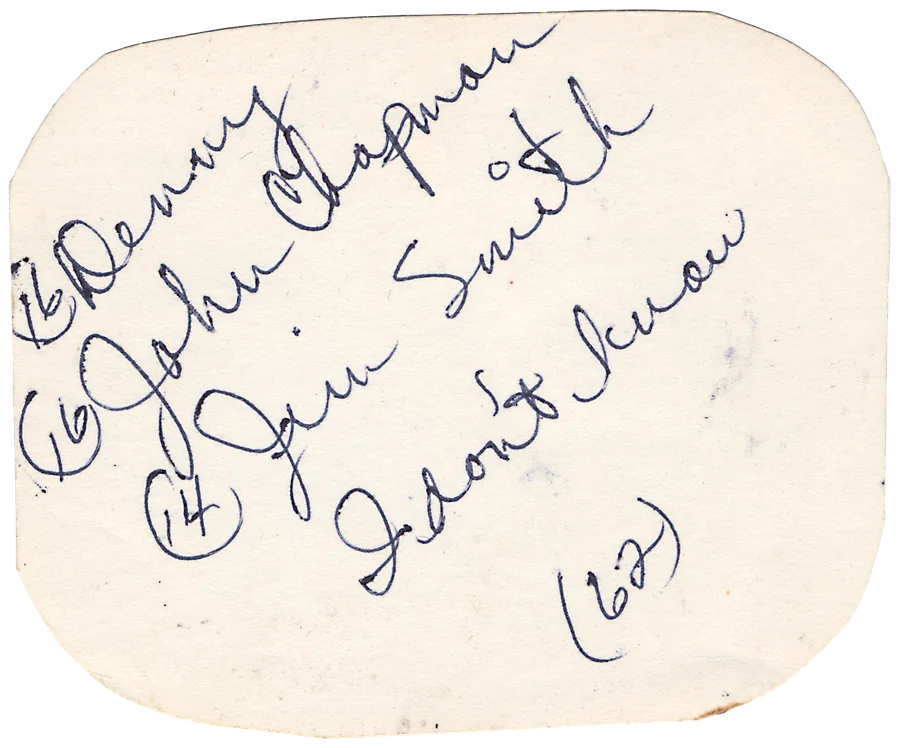 16 Denny
16 John Chapman
14 Jim Smith
I don't know
(62)